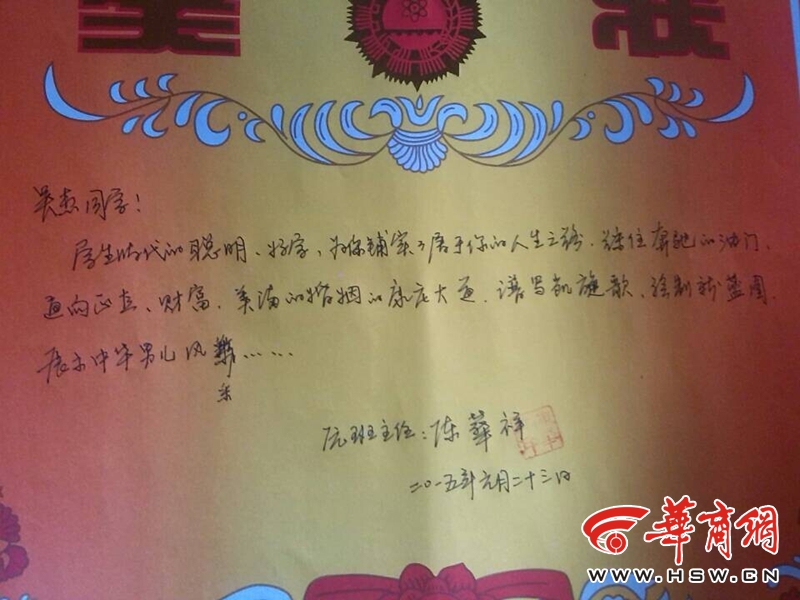 奖 状
吴杰同学！
学生时代的聪明、好学、为你铺实了属于你的人生之路，踩住奔驰的油门、
直向正点、财富、美满的婚姻的康庄大道，谱写凯旋歌、绘制新蓝图，
展示中华男儿风采……
采
原班主任：陈華祥
二〇一五年元月二十三日
華商網
WWW.HSW.CN